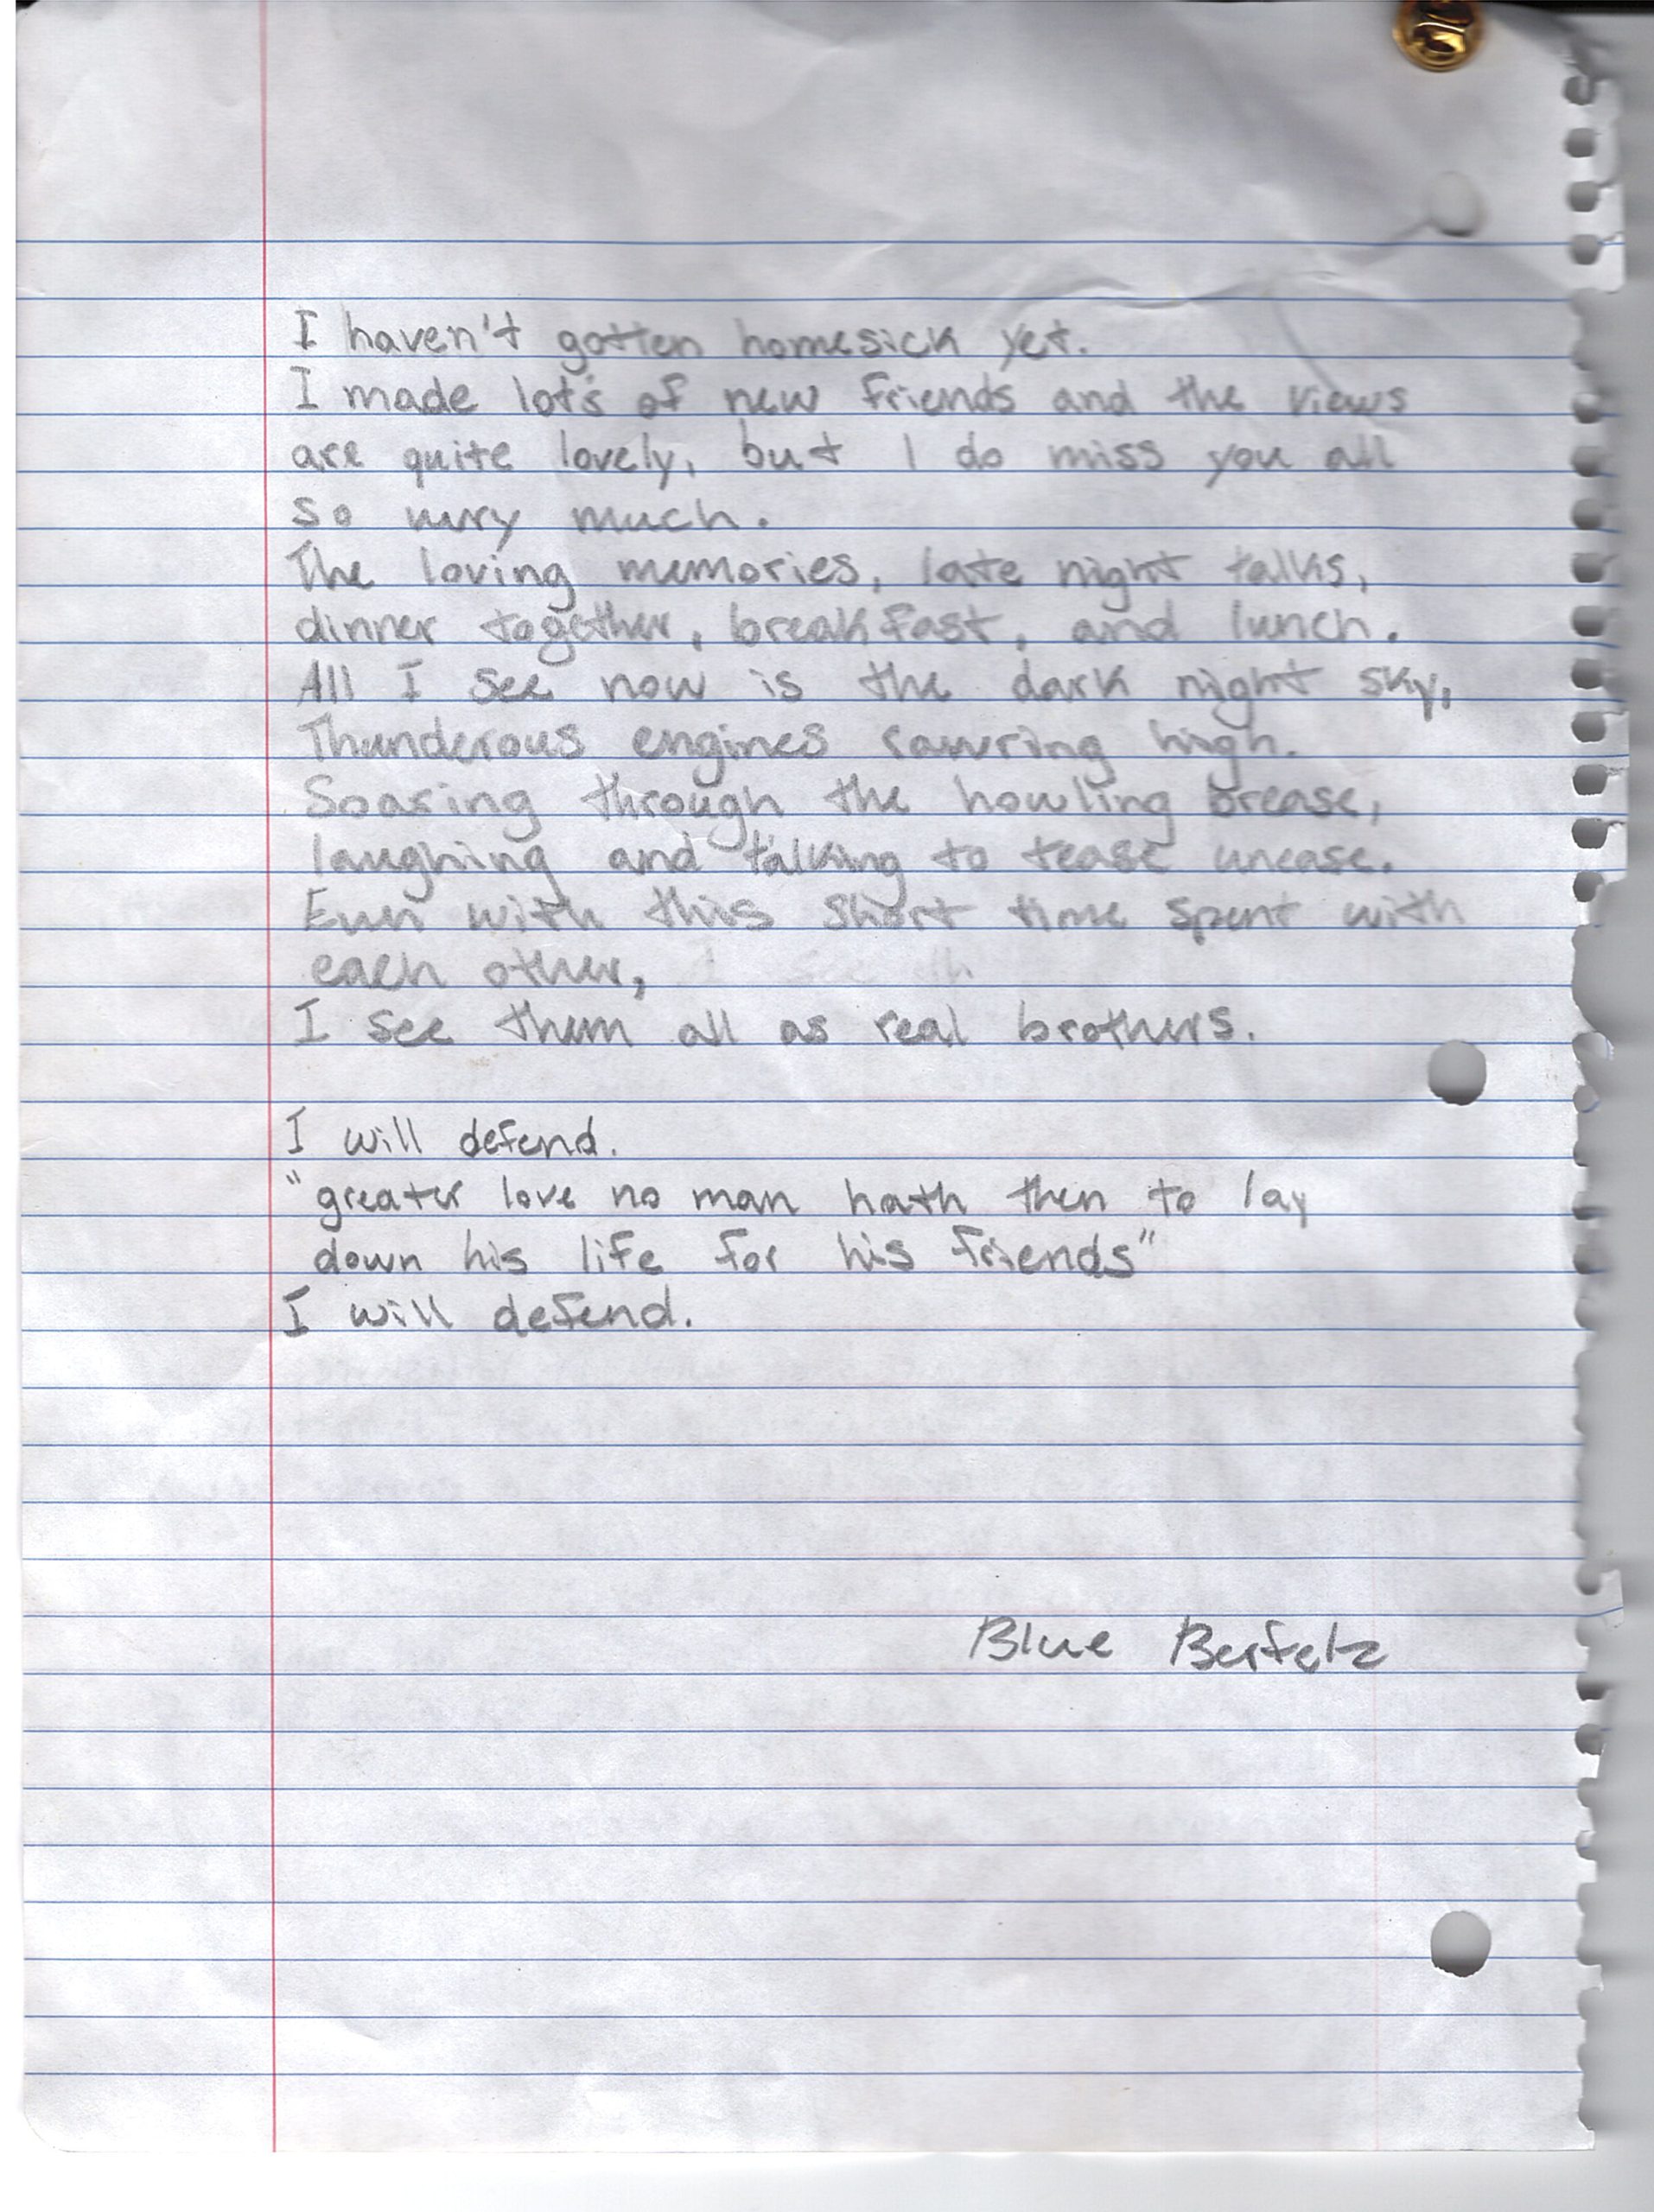 I haven't gotten homesick yet.
I made lot's of new friends and the views
are quite lovely, but I do miss you all
so very much.
The loving memories, late night talks,
dinner together, breakfast, and lunch.
All I see now is the dark night sky,
Thunderous engines rawring high.
Soaring through the howling brease,
laughing and talking to tease unease.
Even with this short time spent with
each other,
I see them all as real brothers.
I will defend.
"greater love no man hath then to lay
down his life for his friends"
I will defend.
Blue